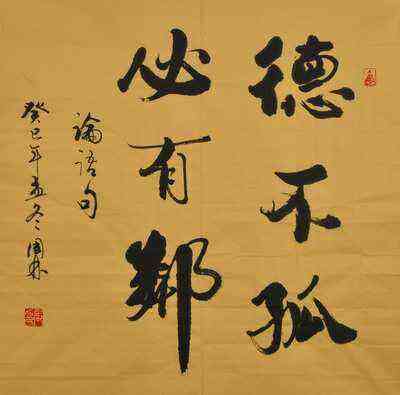 德不孤
必有鄰
論語句
癸巳年孟冬國林